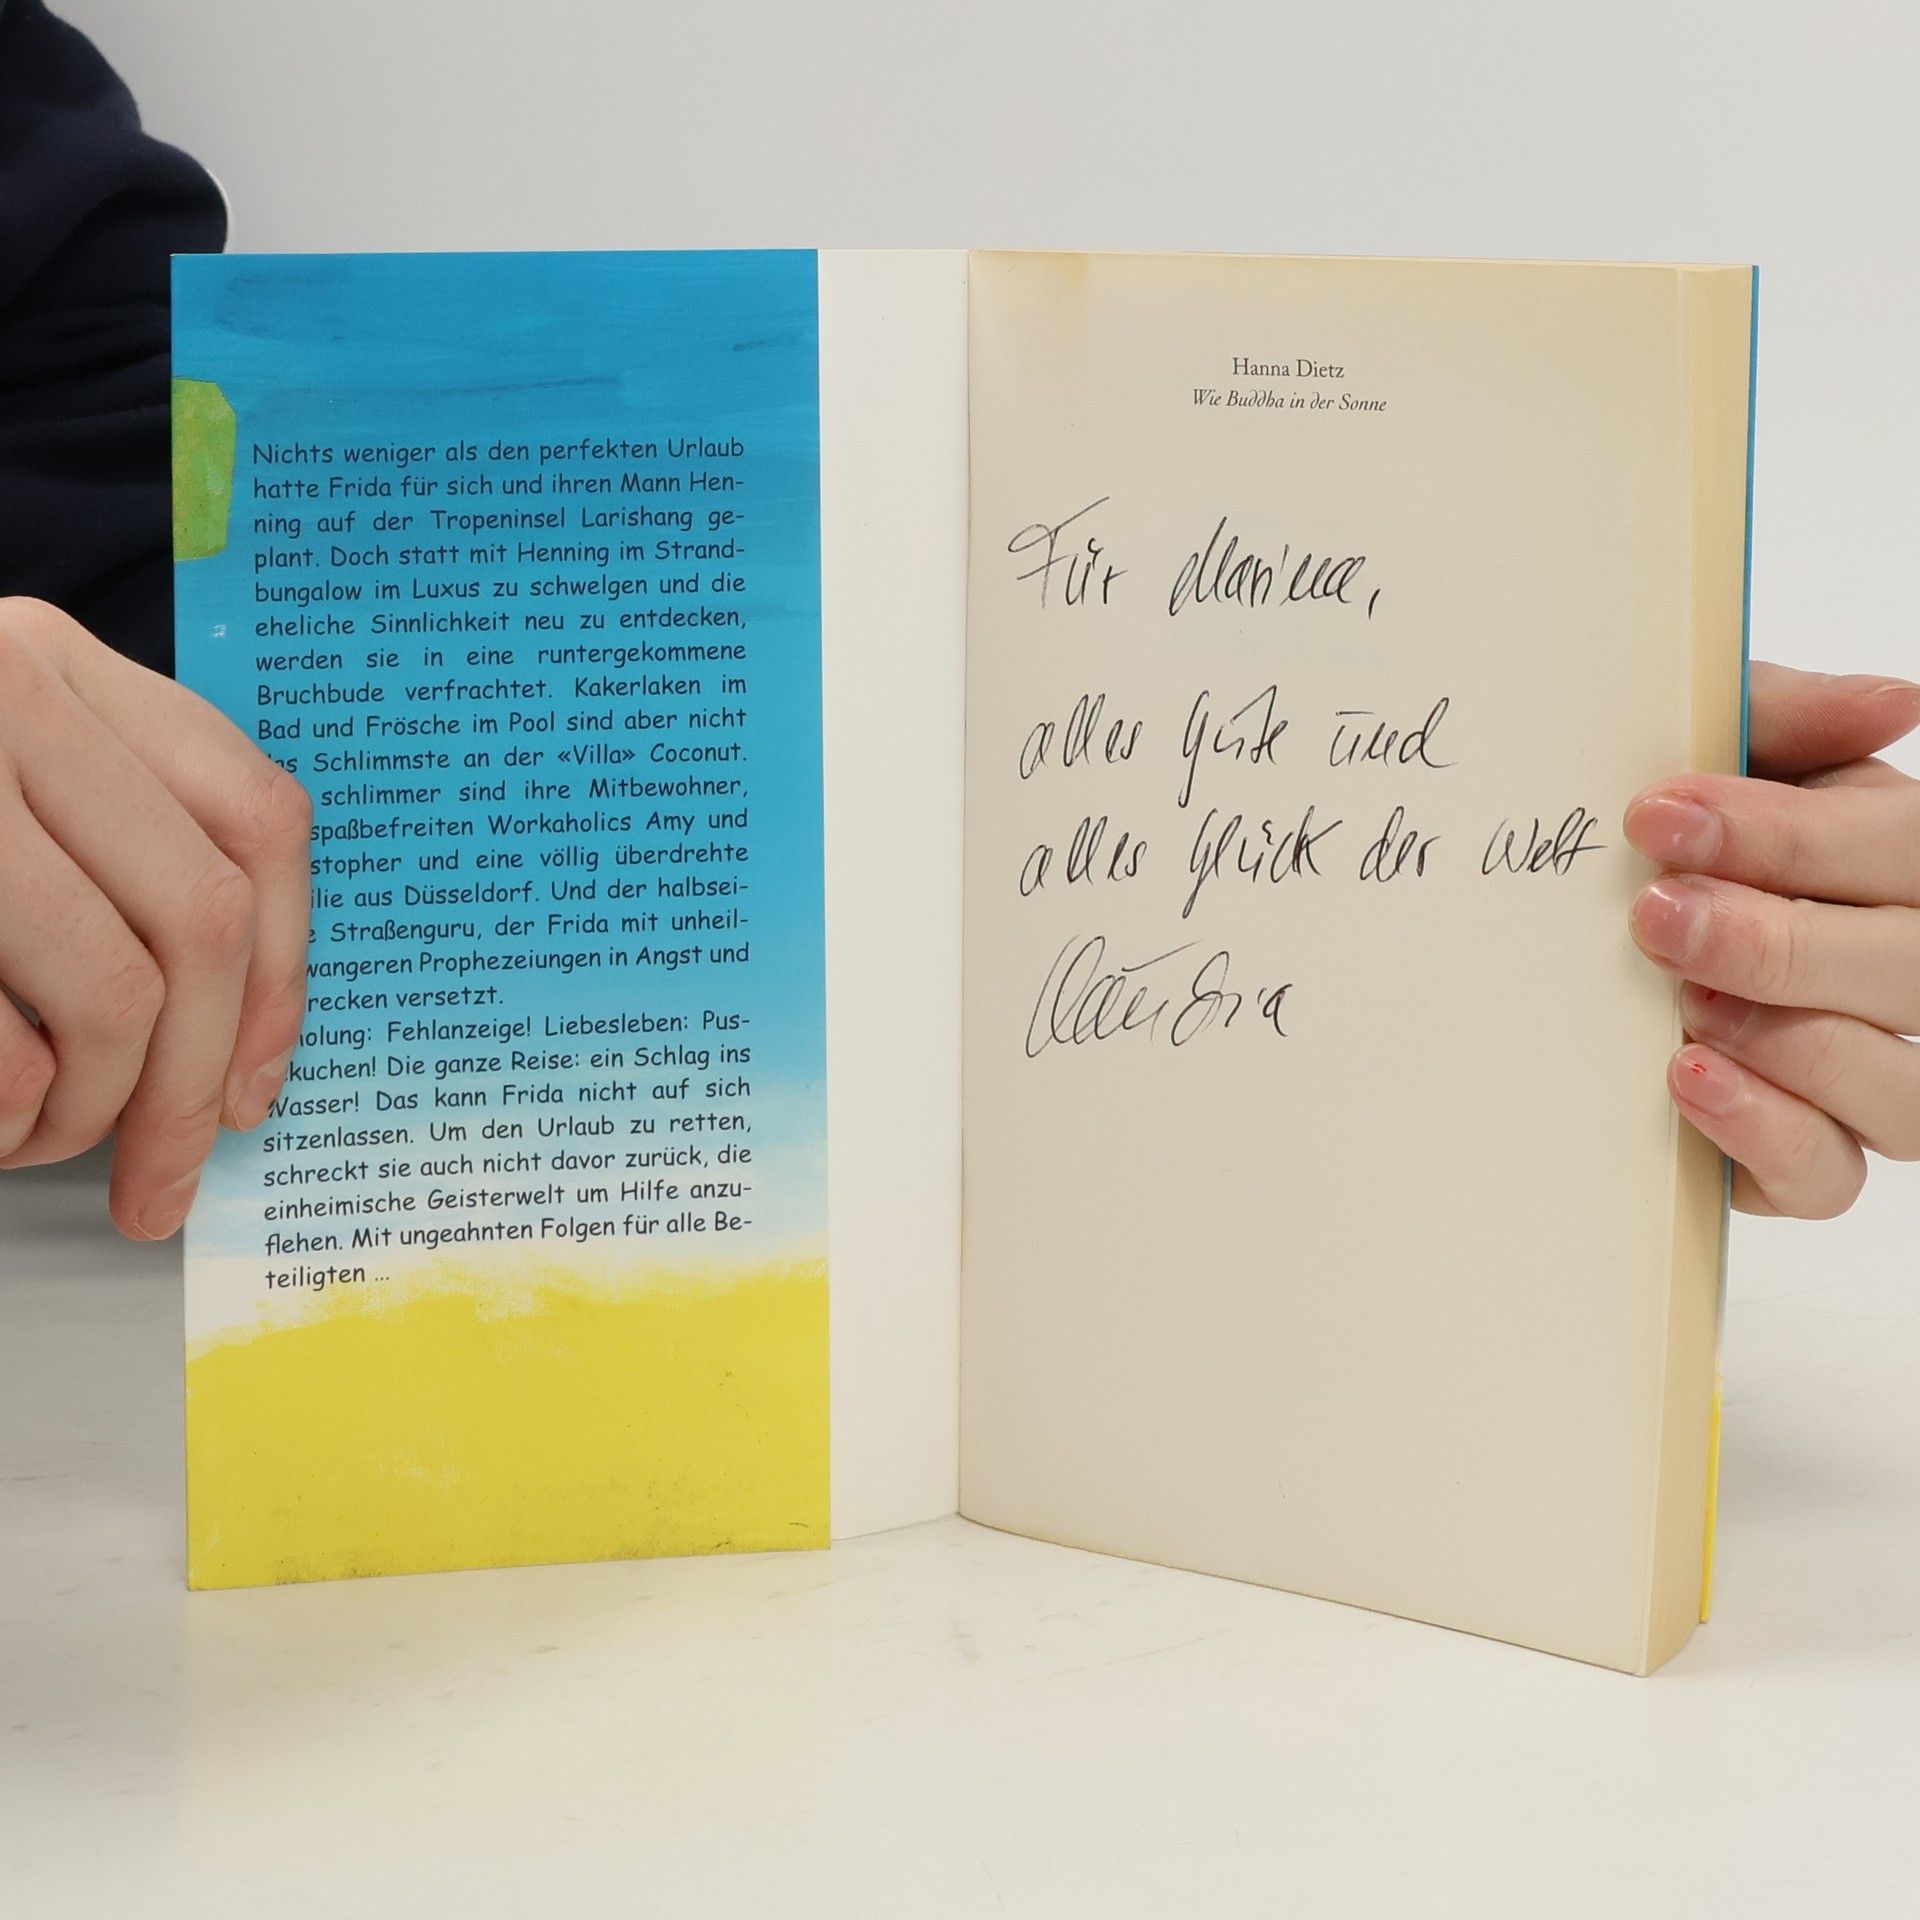 Nichts weniger als den perfekten Urlaub
hatte Frida für sich und ihren Mann Hen-
ning auf der Tropeninsel Larishang ge-
plant. Doch statt mit Henning im Strand-
bungalow im Luxus zu schwelgen und die
eheliche Sinnlichkeit neu zu entdecken,
werden sie in eine runtergekommene
Bruchbude verfrachtet. Kakerlaken im
Bad und Frösche im Pool sind aber nicht
Schlimmste an der «Villa» Coconut.
schlimmer sind ihre Mitbewohner,
spaßbefreiten Workaholics Amy und
stopher und eine völlig überdrehte
ilie aus Düsseldorf. Und der halbsei-
Straßenguru, der Frida mit unheil-
wangeren Prophezeiungen in Angst und
recken versetzt.
olung: Fehlanzeige! Liebesleben: Pus-
kuchen! Die ganze Reise: ein Schlag ins
Wasser! Das kann Frida nicht auf sich
sitzenlassen. Um den Urlaub zu retten,
schreckt sie auch nicht davor zurück, die
einheimische Geisterwelt um Hilfe anzu-
flehen. Mit ungeahnten Folgen für alle Be-
teiligten ...
Hanna Dietz
Wie Buddha in der Sonne
Für Marina,
alles Gute und
alles Glück der Welt
Claudia